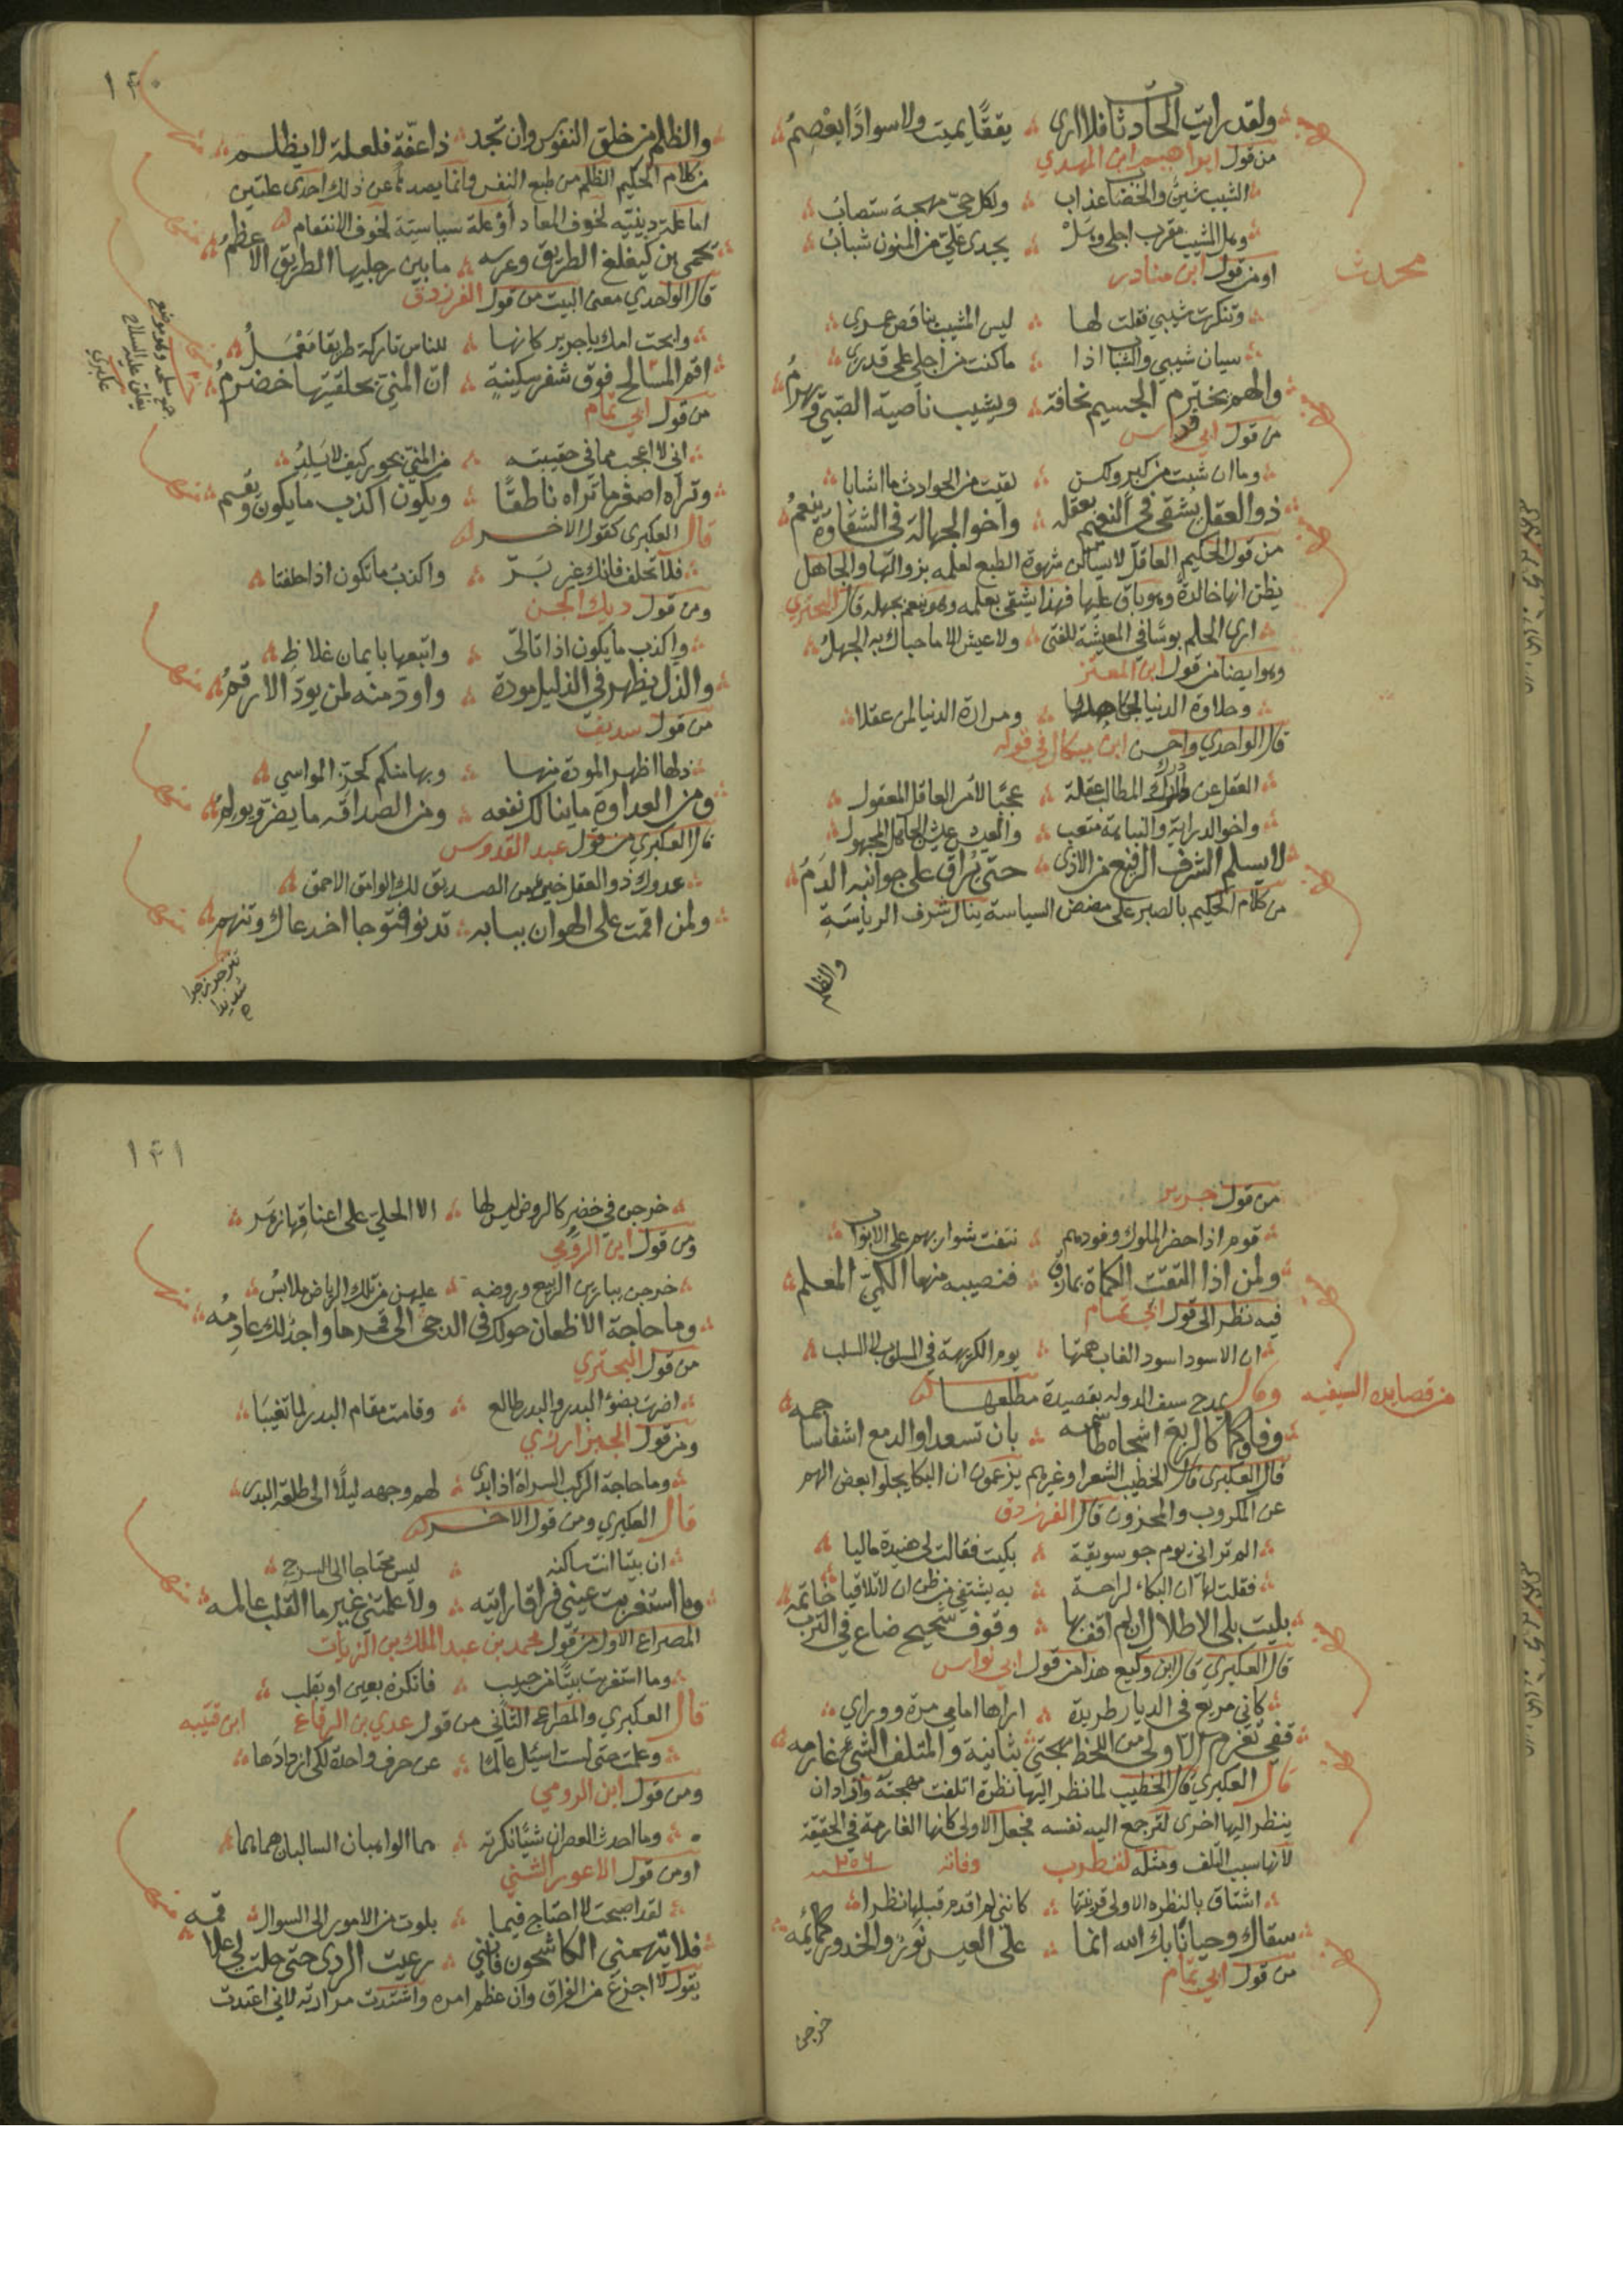 ولقد رايت الحادثات فلا ارى ۞ يققًا يميت ولا سوادًا يعْصِمُ
من قول ابراهيم ابن المهدي
الشيب شينٌ والخضاب عذاب ۞ ولكل حيّ مهجة ستصابُ
اومن قول ابن منادر
محدث
وتنكرت شيبي فقلت لها ۞ ليس المشيب بناقص عمري
سيان شيبي والشباب اذا ۞ ما كنت من اجلي على قدرِ
والهم يخترم الجسيم نحافة ۞ ويشيب ناصية الصّبيّ ويهرمُ
من قول ابي فراس
وما ان شبت من كبر ولكن ۞ لقيت من الحوادث ما اشابا
ذو العقل يشقى في النعيم بعقله ۞ واخو الجهالة في الشقاوة ينعمُ
من قول الحكيم العاقل لا يساكن شهوة الطبع لعلمه بزوالها والجاهل
يظن انها خالدة وهو باق عليها فهذا يشقى بعلمه وهو ينعم بجهله قال البحتري
ارى الحلم بوسًا في المعيشة للفتى ۞ ولا عيش الا ما حباك به الجهلُ
وهو ايضا من قول ابن المعتز
وحلاوة الدنيا لجاهلها ۞ ومرارة الدنيا لمن عقلا
قال الواحدي واحسن ابن ميكال في قوله
العقل عن درك المطالب عقلة ۞ عجبًا لأمر العاقل المعقول
واخو الدراية والنباهة متعب ۞ والعيش عيش الجاهل المجهول
لا يسلم الشرف الرفيع من الاذى ۞ حتى يُراق على جوانبه الدَمُ
من كلام الحكيم بالصبر على مضض السياسة ينال شرف الرياسة
والظلم
١٤٠
والظلم من خلق النفوس وان تجد ۞ ذا عفّة فلعلة لا يظلم
من كلام الحكيم الظلم من طبع النفس وانما يصدها عن ذلك احدى علتين
اما علة دينيّه لخوف المعاد او علة سياسيّة لخوف الانتقام
يحمى ابن كيغلغ الطريق وعرسه ۞ ما بين رجليها الطريق الاعظمُ
قال الواحدي معنى البيت من قول الفرزدق
وابحت امك يا جرير كانها ۞ للناس باركة طريقا مَعْمَلُ
اقم المسالح فوق شفر سكينةٍ ۞ انّ المنيّ بحلقتيها خضرمُ
من قول ابي تمام
وتراه اصغر ما تراه ناطقًا ۞ ويكون اكذب ما يكون ويُقسم
قال العكبرى كقول الاخر
فلا تحلف فانك غير بَرّ ۞ واكذب ما تكون اذا حلفتا
ومن قول ديك الجن
واكذب ما يكون اذا تالّى ۞ واتبعها بايمان غلاظِ
والذل يظهر في الذليل مودة ۞ واود منه لمن يودّ الارقمُ
من قول سديف
ذلها اظهر المودة منها ۞ وبها منكم كحزّ المواسي
ومن العداوة ما ينالك نفعه ۞ ومن الصداقه ما يضر ويولمُ
قال العكبري من قول عبد القدوس
عدوك ذو العقل خيرٌ من الصديق لك الوامق الاحمق
ولمن اقمت على الهوان ببابه ۞ تدنو فتوجا اخدعاك وتنهم
من قول جرير
قوم اذا حضر الملوك وفودهم ۞ نتفت شواربهم على الابواب
ولمن اذا التقت الكماة بمازق ۞ فنصيبه منها الكميّ المعلم
فيه نظر الى قول ابي تمام
ان الاسود اسود الغاب همتها ۞ يوم الكريهة في المسلوب لا السلب
من قصايده السيفيه
وقال يمدح سيف الدوله بقصيدة مطلعها
وفاوكما كالربع اشجاه طاسمه ۞ بان تسعدا والدمع اشفاه ساجمه
قال العكبرى قال الخطيب الشعرا وغيرهم يزعمون ان البكا يجلو بعض الهم
عن المكروب والمحزون قال الفرزدق
الم تر اني يوم جو سويقة ۞ بكيت فقالت لي هنيدة ماليا
فقلت لها ان البكاء لراحة ۞ به يشتفي من ظن ان لا تلاقيا
بليت بلى الاطلال ان لم اقف بها ۞ وقوف شحيح ضاع في الترب خاتمه
قال العكبري قال ابن وكيع هذا من قول ابي نواس
كاني مريع في الديار طريدة ۞ اراها امامي مرة وورايِ
قفي تغرم الاولى من اللحظ مهجتي ۞ بثانية والمتلف الشيء غارمه
قال العكبري قال الخطيب لما نظر اليها نظرة اتلفت مهجته واراد ان
ينظر اليها اخرى لترجع اليه نفسه فجعل الاولى كانها الغارمة في الحقيقة
لانها سبب التلف ومثله لقطرب وفاته ٢٥٦
اشتاق بالنظره الاولى قرينتها ۞ كانني لم اقدم قبلها نظرا
سقاك وحيانا بك الله انما ۞ على العيس نَورٌ والخدور كمائمه
من قول ابي تمام
خرجن
١٤١
خرجن في خضرٍ كالروض ليس لها ۞ الا الحلي على اعناقها زهَر
ومن قول ابن الرومي
وما حاجة الاظعان حولك في الدجى ۞ الى قمر ما واجدٌ لك عادمُه
من قول البحتري
اضرت بضوء البدر والبدر طالع ۞ وقامت مقام البدر لما تغيبَا
ومن قول الخبز ارزي
وما حاجة الركب السراة اذا بدى ۞ لهم وجهه ليلًا الى طلعة البدر
قال العكبري ومن قول الاخر
ان بيتا انت ساكنه ۞ ليس محتاجا الى السرج
وما استغربت عيني فراقا رايته ۞ ولا علمتني غير ما القلب عالمه
المصراع الاول من قول محمد بن عبد الملك بن الزيات
قال العكبري والمصراع الثاني من قول عدي بن الرقاع
وعلمت حتى لست اسئل عالمًا ۞ عن حرف واحدة لكي ازدادَها
ومن قول ابن الرومي
وما احدث العصران شيئًا نكرته ۞ هما الواهبان السالبان هما هما
اومن قول الاعور الشني
لقد اصبحت لا احتاج فيما ۞ بلوت من الامور الى السوال
فلا يتهمني الكاشحون فانني ۞ رعيت الردى حتى حلت لي علاقمه
يقول لا اجزع من الفراق وان عظم امره واشتدت مرارته لاني اعتدت